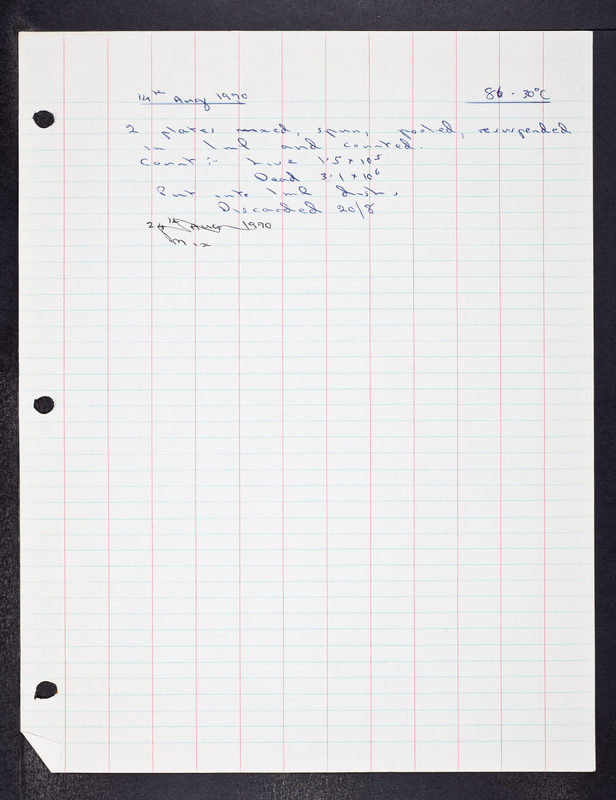 14th Aug 1970 86 - 30°C
2 plates mixed, spun, pooled, resuspended
in 1ml and counted.
Count :- Live 1·5 × 10⁵
Dead 3·1 × 10⁶
Put into 1ml dish,
Discarded 20/8
24th Aug 1970
Mix